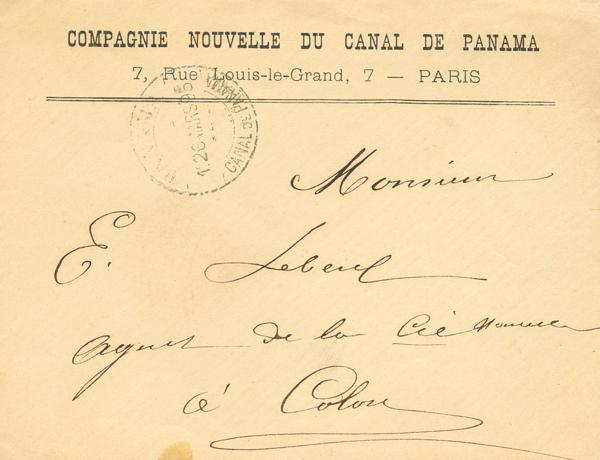 COMPAGNIE NOUVELLE DU CANAL DE PANAMA
7, Rue Louis-le-Grand, 7 — PARIS
CANAL DE PANAMA
26 MARS 95
Monsieur
E.
agent de la Cie Nouvelle
à Colon